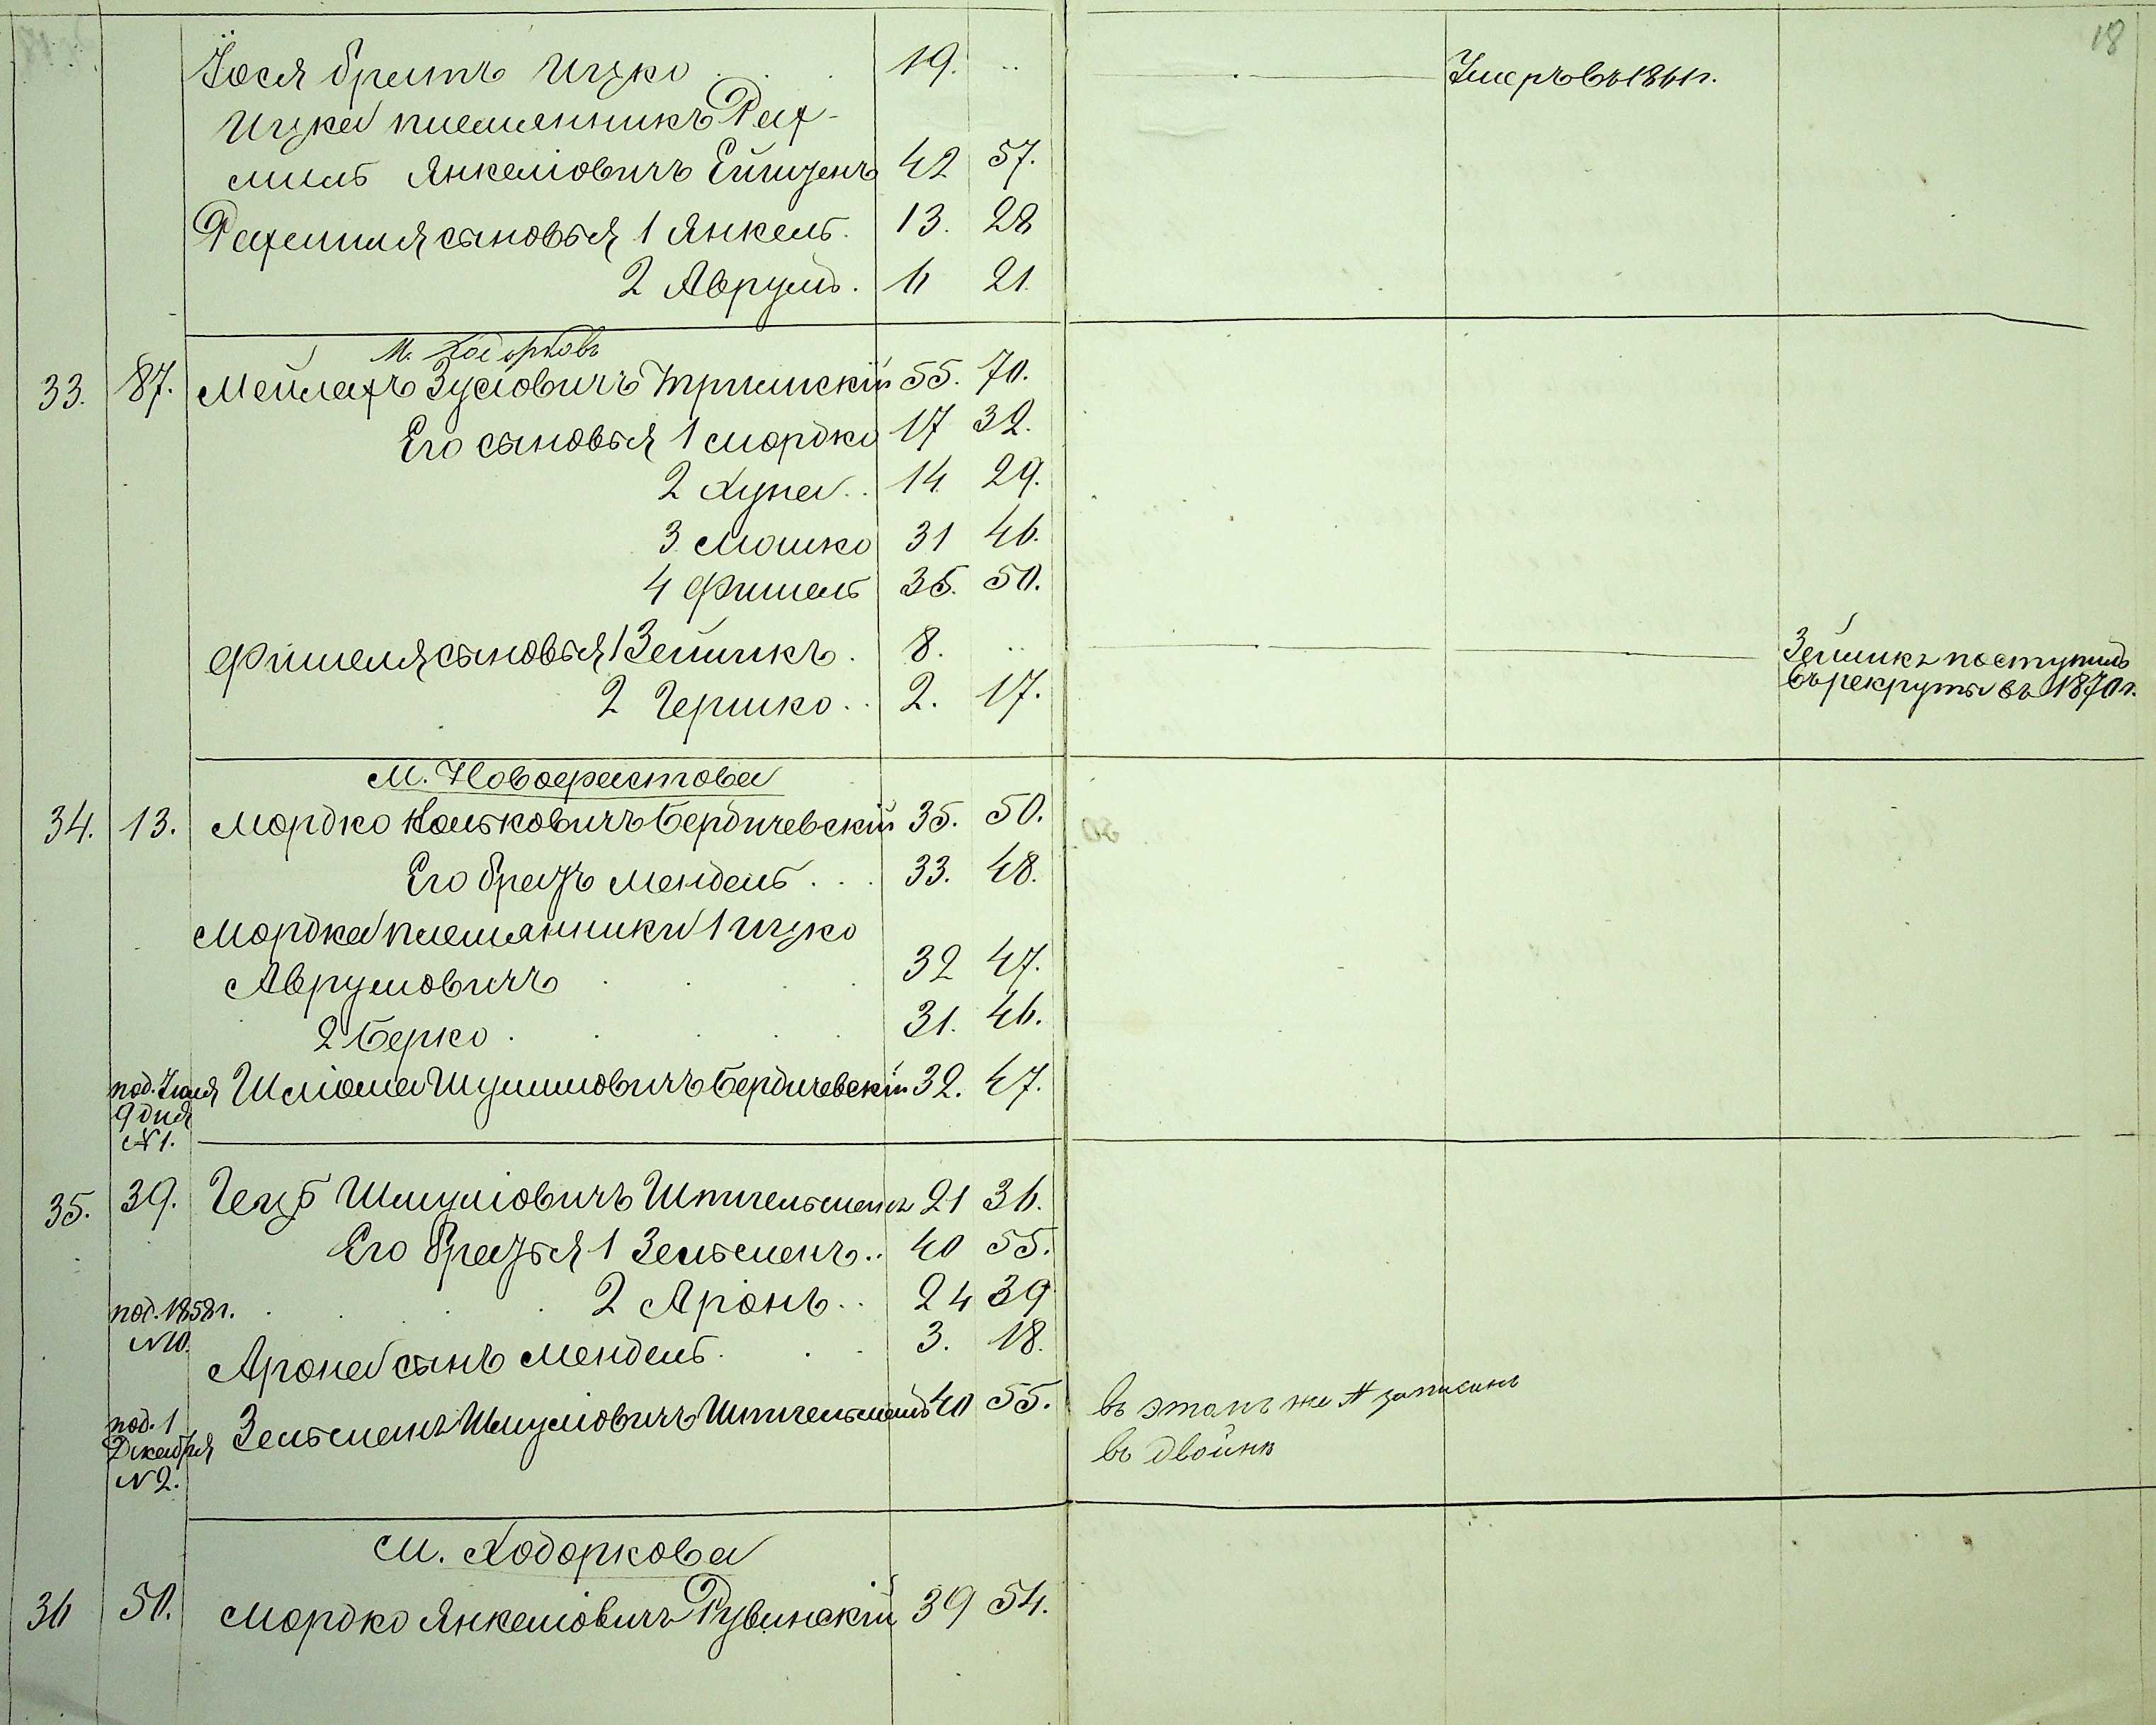 18
Іося братъ Ицко 19. Умеръ въ 1861 г.
Ицка племянникъ Рах-
миль Янкеліовичъ 42 57.
Рахмиля сыновья 1 Янкель. 13. 28
2 Аврумъ. 6 21.
М. Ходорковъ
33. 87. Мейлахъ Зусіовичъ 55. 70.
Его сыновья 1 Мордко 17 32.
2 Хуна.. 14 29.
3 Мошко 31 46.
4 Фишель 35. 50.
Фишеля сыновья 1 Зейликъ. 8. Зейликъ поступилъ
въ рекруты въ 1870 г.
2 Гершко.. 2. 17.
М. Новофастова
34. 13. Мордко Волковичъ Бердичевскій 35. 50.
Его братъ Мендель... 33. 48.
Мордка племянники 1 Ицко
Аврумовичъ 32 47.
2 Берко. 31. 46.
под. Іюля Шліома Шулимовичъ Бердичевскій 32. 47.
9 дня
№ 1.
35. 39. Герцъ Шмуліовичъ Штительманъ 21 36.
Его братья 1 Зельманъ.. 40 55.
2 Аронъ.. 24 39
под. 1858 г.
№ 10.
Арона сынъ Мендель. 3. 18.
под. 1 Зельманъ Шмуліовичъ Штительманъ 40 55. въ этомъ же № записанъ
Декабря
№ 2.
въ двойнѣ
М. Ходоркова
36 50. Мордко Янкеліовичъ Рувинскій 39 54.